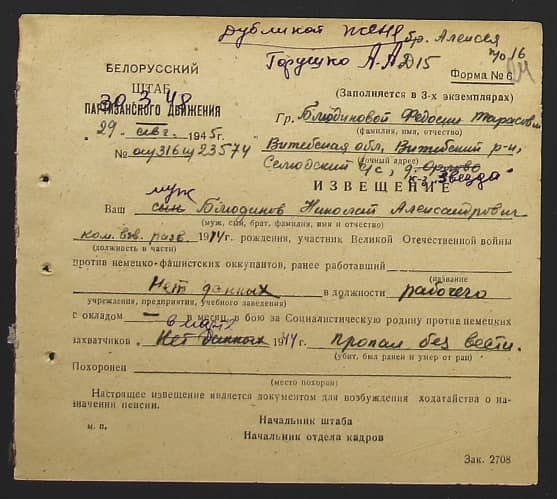 Дубликат жене
бр. Алексея
Горушко А.А. Д15
п/о 16
БЕЛОРУССКИЙ
ШТАБ
ПАРТИЗАНСКОГО ДВИЖЕНИЯ
30 3 48
Форма № 6
(Заполняется в 3-х экземплярах)
29 авг. 1945 г.
№ 23574
Гр. Блюдиновой Федосии Тарасовне
(фамилия, имя, отчество)
Витебская обл. Витебский р-н,
(точный адрес)
с/с, д. Орлово
к-з "Звезда"
ИЗВЕЩЕНИЕ
муж
Ваш сын Блюдинов Николай Александрович
(муж, сын, брат, фамилия, имя и отчество)
ком. взв. разв. 1914 г. рождения, участник Великой Отечественной войны
(должность в части)
против немецко-фашистских оккупантов, ранее работавший
(название
Нет данных в должности рабочего
учреждения, предприятия, учебного заведения)
с окладом — в месяц, в бою за Социалистическую родину против немецких
в марте
захватчиков Нет данных 1944 г. Пропал без вести.
(убит, был ранен и умер от ран)
Похоронен
(место похорон)
Настоящее извещение является документом для возбуждения ходатайства о на-
значении пенсии.
Начальник штаба
м. п.
Начальник отдела кадров
Зак. 2708